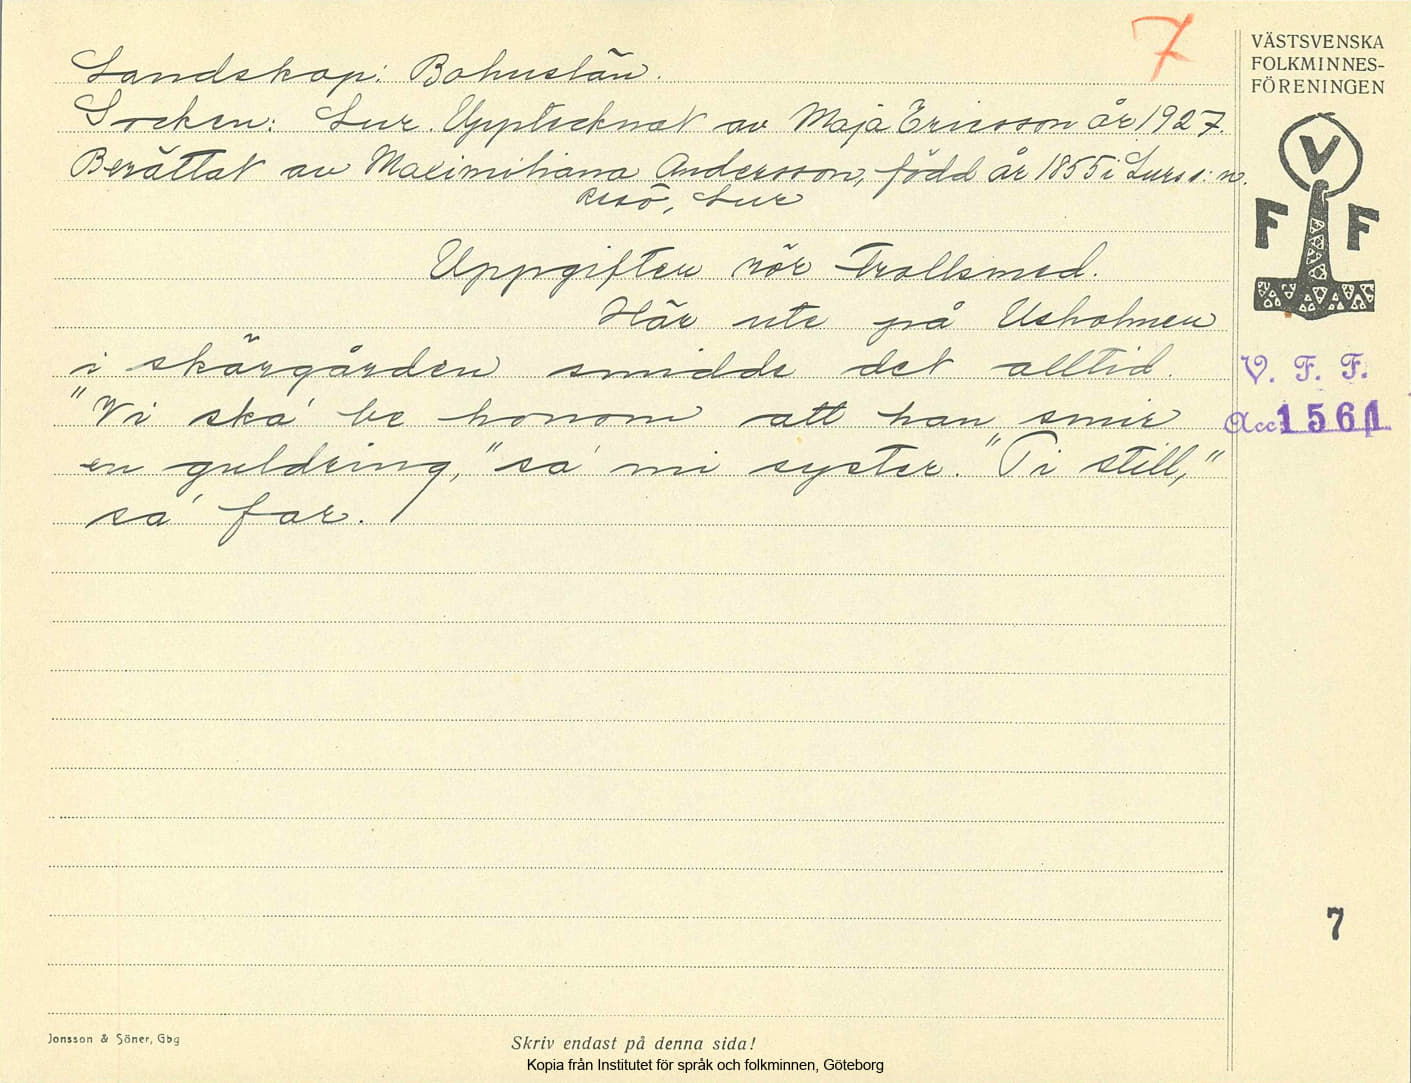 7
Landskap: Bohuslän.
Socken: Lur. Upptecknat av Maja Ericsson år 1927.
Berättat av Maximiliana Andersson, född år 1855 i Lurs s:n.
Resö, Lur
Uppgiften rör Trollsmed.
Här ute på Usholmen
i skärgården smidde det alltid.
"Vi ska' be honom att han smir
en guldring," sa' mi syster. "Ti still,"
sa' far.
VÄSTSVENSKA
FOLKMINNES-
FÖRENINGEN
V
F F
V. F. F.
Acc: 1561
7
Jonsson & Söner, Gbg
Skriv endast på denna sida!
Kopia från Institutet för språk och folkminnen, Göteborg